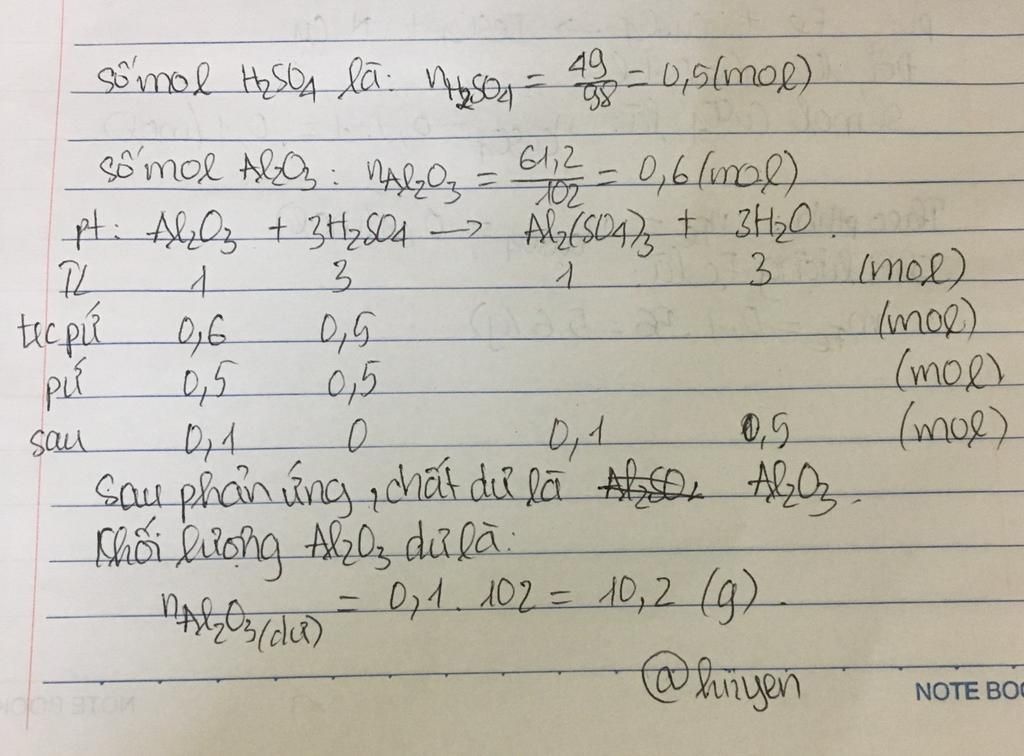 số mol H₂SO₄ là: nH₂SO₄ = 49/98 = 0,5 (mol)
số mol Al₂O₃: nAl₂O₃ = 61,2/102 = 0,6 (mol)
pt: Al₂O₃ + 3H₂SO₄ → Al₂(SO₄)₃ + 3H₂O.
TL 1 3 1 3 (mol)
tcpứ 0,6 0,5 (mol)
pứ 0,5 0,5 (mol)
sau 0,1 0 0,1 0,5 (mol)
Sau phản ứng, chất dư là Al₂O₃.
Khối lượng Al₂O₃ dư là:
nAl₂O₃(dư) = 0,1 . 102 = 10,2 (g).
@huyen
NOTE BOO